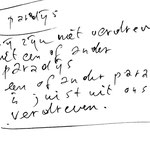 paradys
zy zyn niet verdreven
uit een of ander
paradys
een of ander para
is juist uit ons
verdreven.